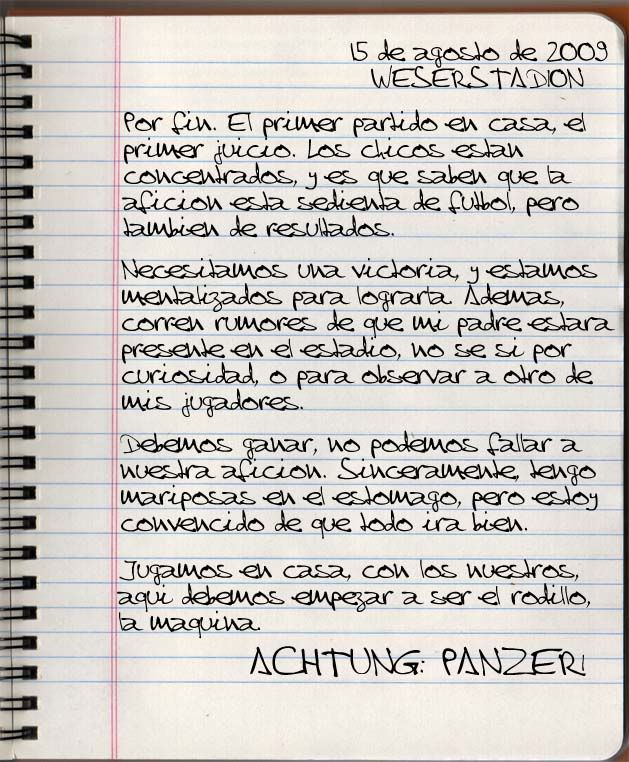 15 de agosto de 2009
WESERSTADION
Por fin. El primer partido en casa, el
primer juicio. Los chicos estan
concentrados, y es que saben que la
aficion esta sedienta de futbol, pero
tambien de resultados.
Necesitamos una victoria, y estamos
mentalizados para lograrla. Ademas,
corren rumores de que mi padre estara
presente en el estadio, no se si por
curiosidad, o para observar a otro de
mis jugadores.
Debemos ganar, no podemos fallar a
nuestra aficion. Sinceramente, tengo
mariposas en el estomago, pero estoy
convencido de que todo ira bien.
Jugamos en casa, con los nuestros,
aqui debemos empezar a ser el rodillo,
la maquina.
ACHTUNG: PANZER!